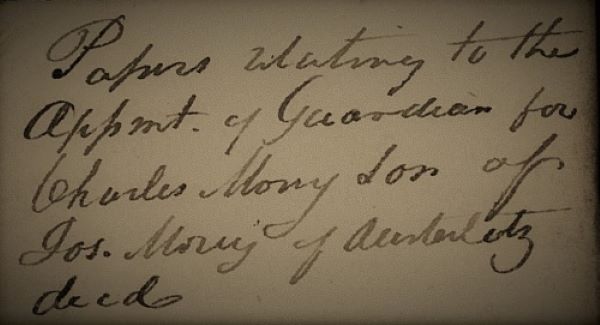 Papers relating to the
Appmt. of Guardian for
Charles Morry Son of
Jos. Morry of Austerlitz
decd